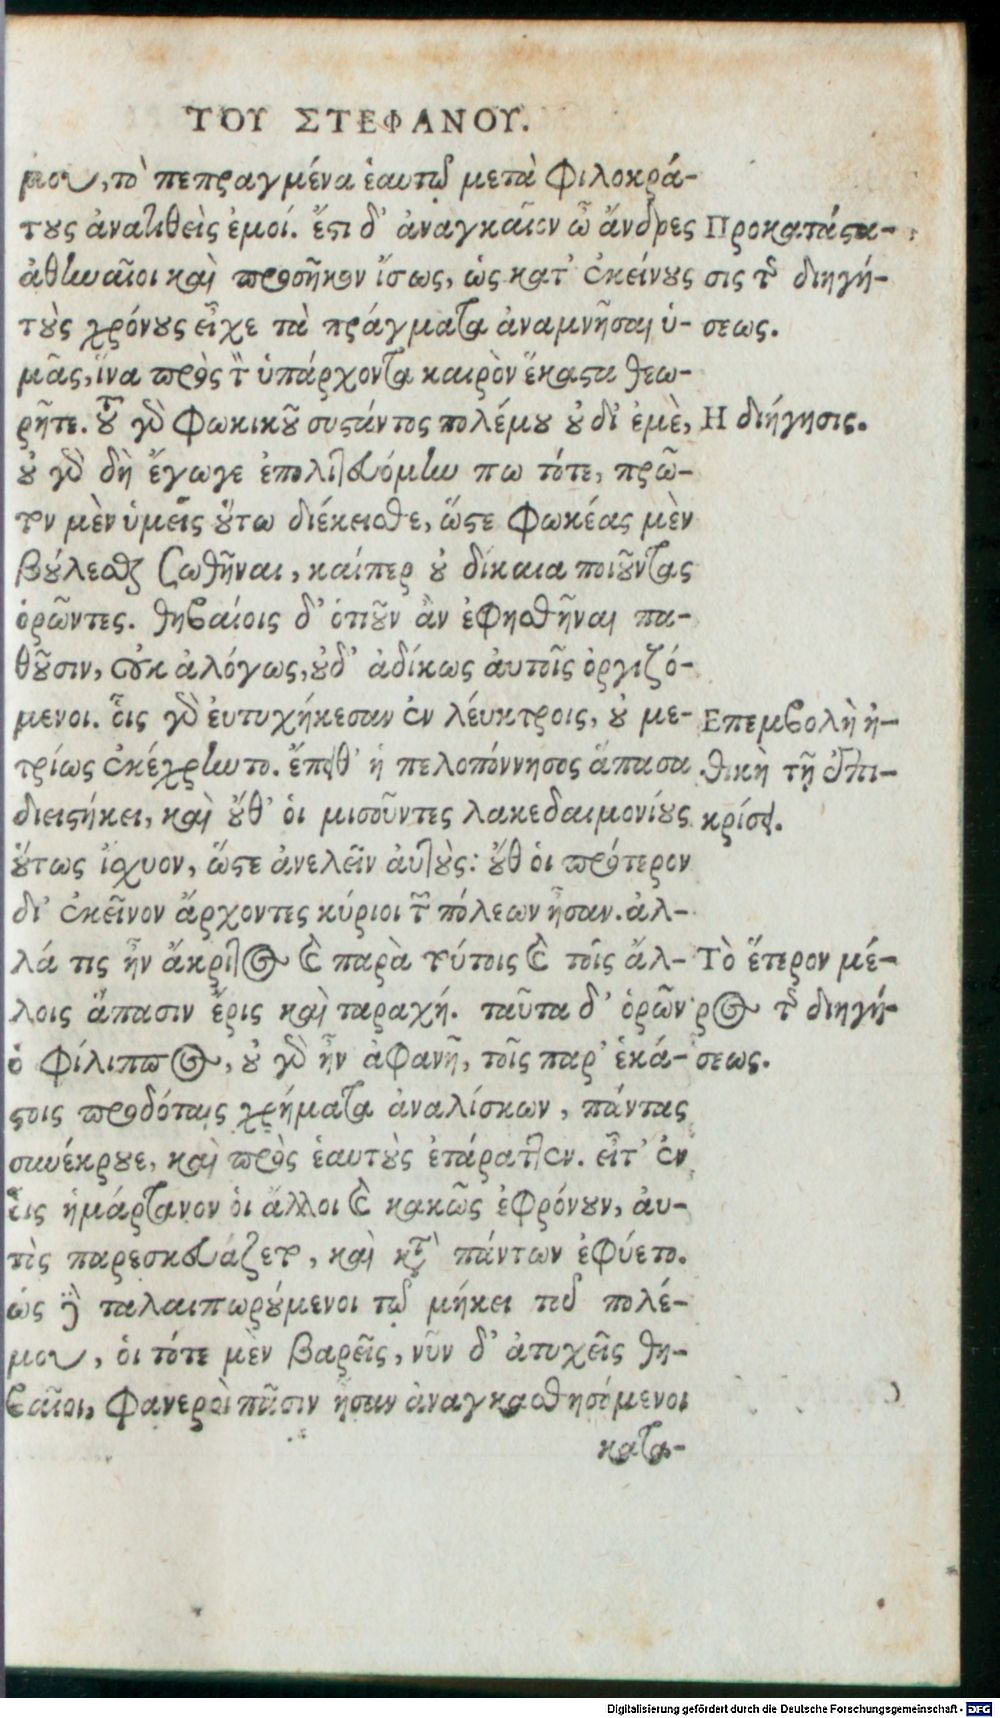 ΤΟΥ ΣΤΕΦΑΝΟΥ.
μου, τὸ πεπραγμένα ἑαυτῷ μετὰ Φιλοκρά-
τους ἀνατιθεὶς ἐμοί. ἔστι δ' ἀναγκαῖον ὦ ἄνδρες
ἀθηναῖοι καὶ προσῆκον ἴσως, ὡς κατ' ἐκείνους
τοὺς χρόνους εἶχε τὰ πράγματα ἀναμνῆσαι ὑ-
μᾶς, ἵνα πρὸς τὸν ὑπάρχοντα καιρὸν ἕκαστα θεω-
ρῆτε. τοῦ γὰρ Φωκικοῦ συστάντος πολέμου οὐ δι' ἐμὲ,
οὐ γὰρ δὴ ἔγωγε ἐπολιτευόμην πω τότε, πρῶ-
τον μὲν ὑμεῖς οὕτω διέκεισθε, ὥστε Φωκέας μὲν
βούλεσθαι σωθῆναι, καίπερ οὐ δίκαια ποιοῦντας
ὁρῶντες. θηβαίοις δ' ὁτιοῦν ἂν ἐφησθῆναι πα-
θοῦσιν, οὐκ ἀλόγως, οὐδ' ἀδίκως αὐτοῖς ὀργιζό-
μενοι. οἷς γὰρ εὐτυχήκεσαν ἐν λεύκτροις, οὐ με-
τρίως ἐκέχρηντο. ἔπειθ' ἡ πελοπόννησος ἅπασα
διειστήκει, καὶ οὔθ' οἱ μισοῦντες λακεδαιμονίους
οὕτως ἴσχυον, ὥστε ἀνελεῖν αὐτούς: οὔθ οἱ πρότερον
δι' ἐκεῖνον ἄρχοντες κύριοι τῶν πόλεων ἦσαν. ἀλ-
λά τις ἦν ἄκριτος καὶ παρὰ τούτοις καὶ τοῖς ἄλ-
λοις ἅπασιν ἔρις καὶ ταραχή. ταῦτα δ' ὁρῶν
ὁ Φίλιππος, οὐ γὰρ ἦν ἀφανῆ, τοῖς παρ' ἑκά-
στοις προδόταις χρήματα ἀναλίσκων, πάντας
συνέκρουε, καὶ πρὸς ἑαυτοὺς ἐτάραττεν. εἶτ' ἐν
οἷς ἡμάρτανον οἱ ἄλλοι καὶ κακῶς ἐφρόνουν, αὐ-
τὸς παρεσκευάζετο, καὶ κατὰ πάντων ἐφύετο.
ὡς δὲ ταλαιπωρούμενοι τῷ μήκει τοῦ πολέ-
μου, οἱ τότε μὲν βαρεῖς, νῦν δ' ἀτυχεῖς θη-
βαῖοι, φανεροὶ πᾶσιν ἦσαν ἀναγκασθησόμενοι
κατα-
Προκατάστα-
σις τῆς διηγή-
σεως.
Η διήγησις.
Επεμβολὴ ἠ-
θικὴ τῇ ἐπι-
κρίσει.
Τὸ ἕτερον μέ-
ρος τῆς διηγή-
σεως.
Digitalisierung gefördert durch die Deutsche Forschungsgemeinschaft - DFG